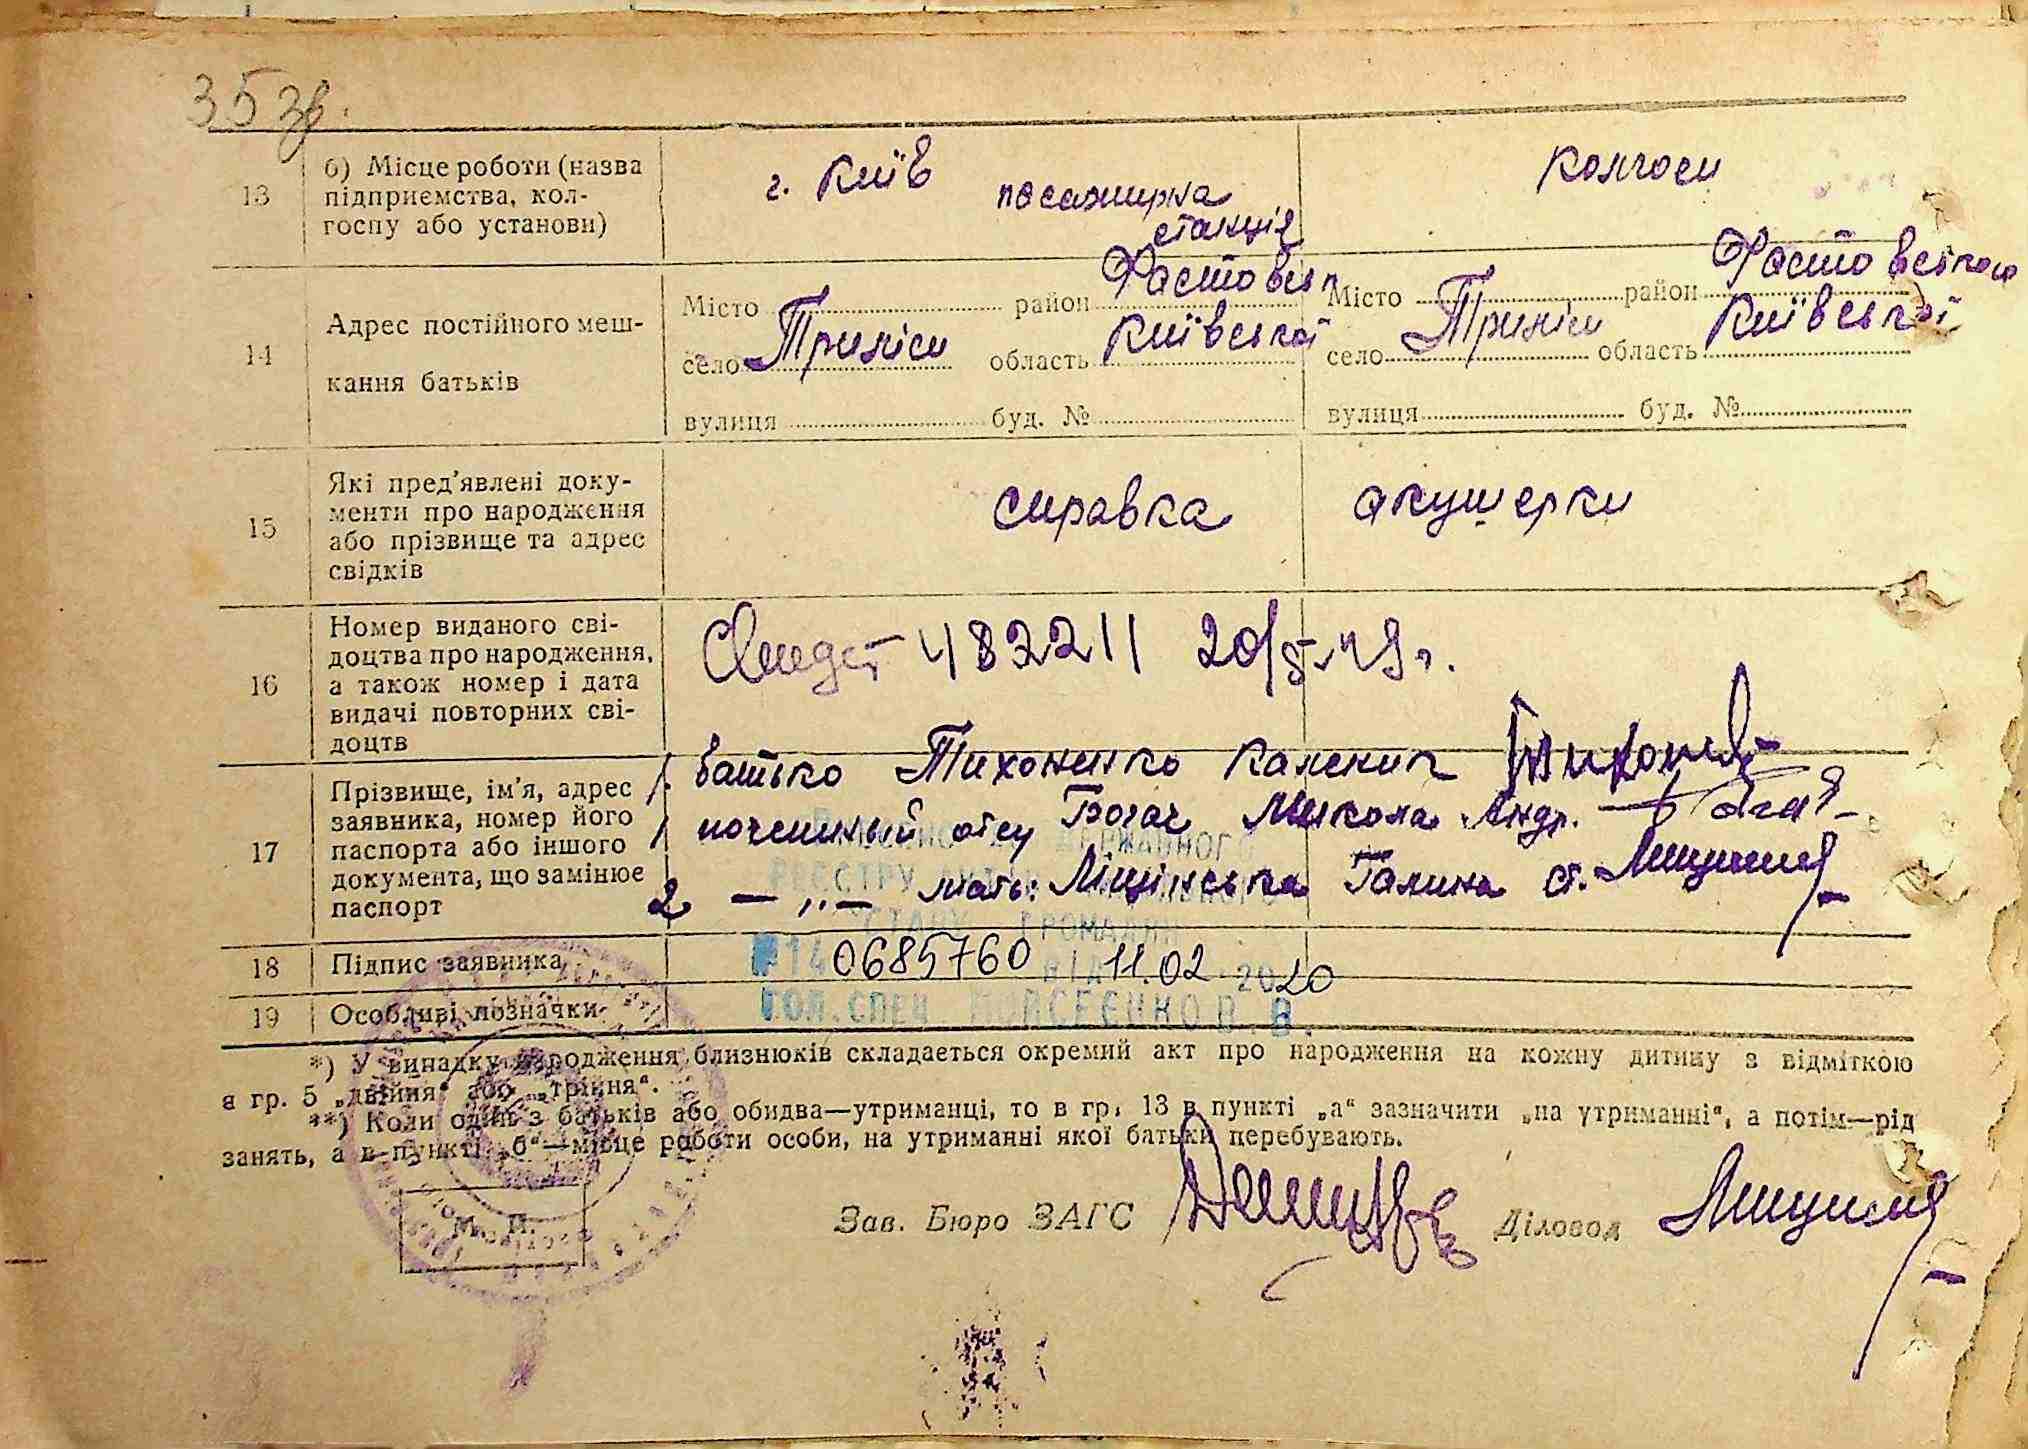 35 зв.
13 б) Місце роботи (назва підприємства, кол-госпу або установи)
г. Київ пасажирка
станція
колгосп
14 Адрес постійного меш-
кання батьків
Місто район Фастовськ
село Триліси область Київської
вулиця буд. №
Місто район Фастовського
село Триліси область Київської
вулиця буд. №
15 Які пред'явлені доку-
менти про народження
або прізвище та адрес
свідків
справка акушерки
16 Номер виданого сві-
доцтва про народження,
а також номер і дата
видачі повторних сві-
доцтв
482211 20/ 49 г.
17 Прізвище, ім'я, адрес
заявника, номер його
паспорта або іншого
документа, що замінює
паспорт
1. батько Тихоненко Каленик
1 отец Богач Микола Андр.
2 — „ — мать: Ліщинська Галина
ДЕРЖАВНОГО
РЕЄСТРУ
СТАНУ ГРОМАДЯН
18 Підпис заявника
№14 0685760 ВІД 11.02.2020
19 Особливі позначки
ГОЛ. СПЕЦ. МОЙСЕЄНКО В.В.
*) У випадку народження близнюків складається окремий акт про народження на кожну дитину з відміткою
в гр. 5 „двійня“ або „трійня“.
**) Коли один з батьків або обидва—утриманці, то в гр. 13 в пункті „а“ зазначити „на утриманні“, а потім—рід
занять, а в пункті „б“—місце роботи особи, на утриманні якої батьки перебувають.
М. П.
Зав. Бюро ЗАГС Діловод